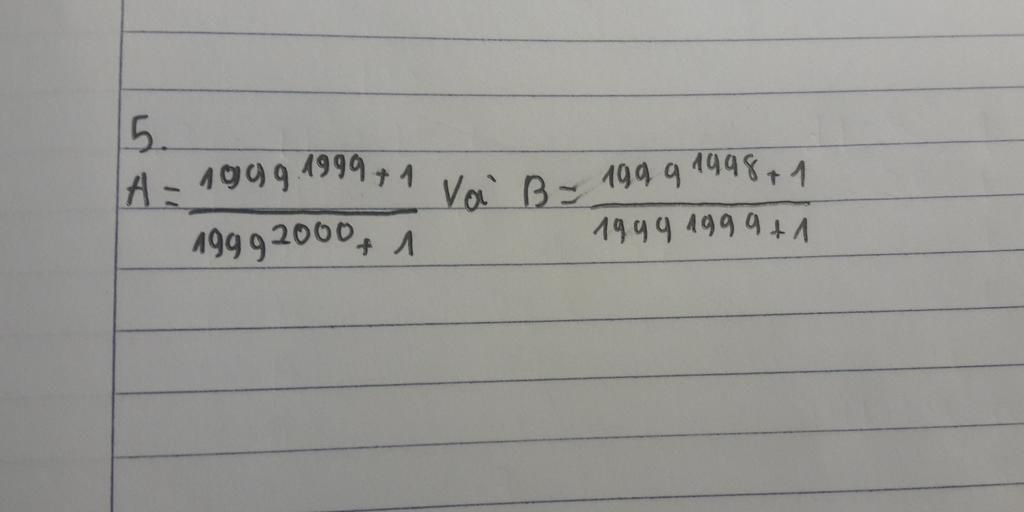 5.
A = \frac{1999^{1999} + 1}{1999^{2000} + 1} Và B = \frac{1999^{1998} + 1}{1999^{1999} + 1}